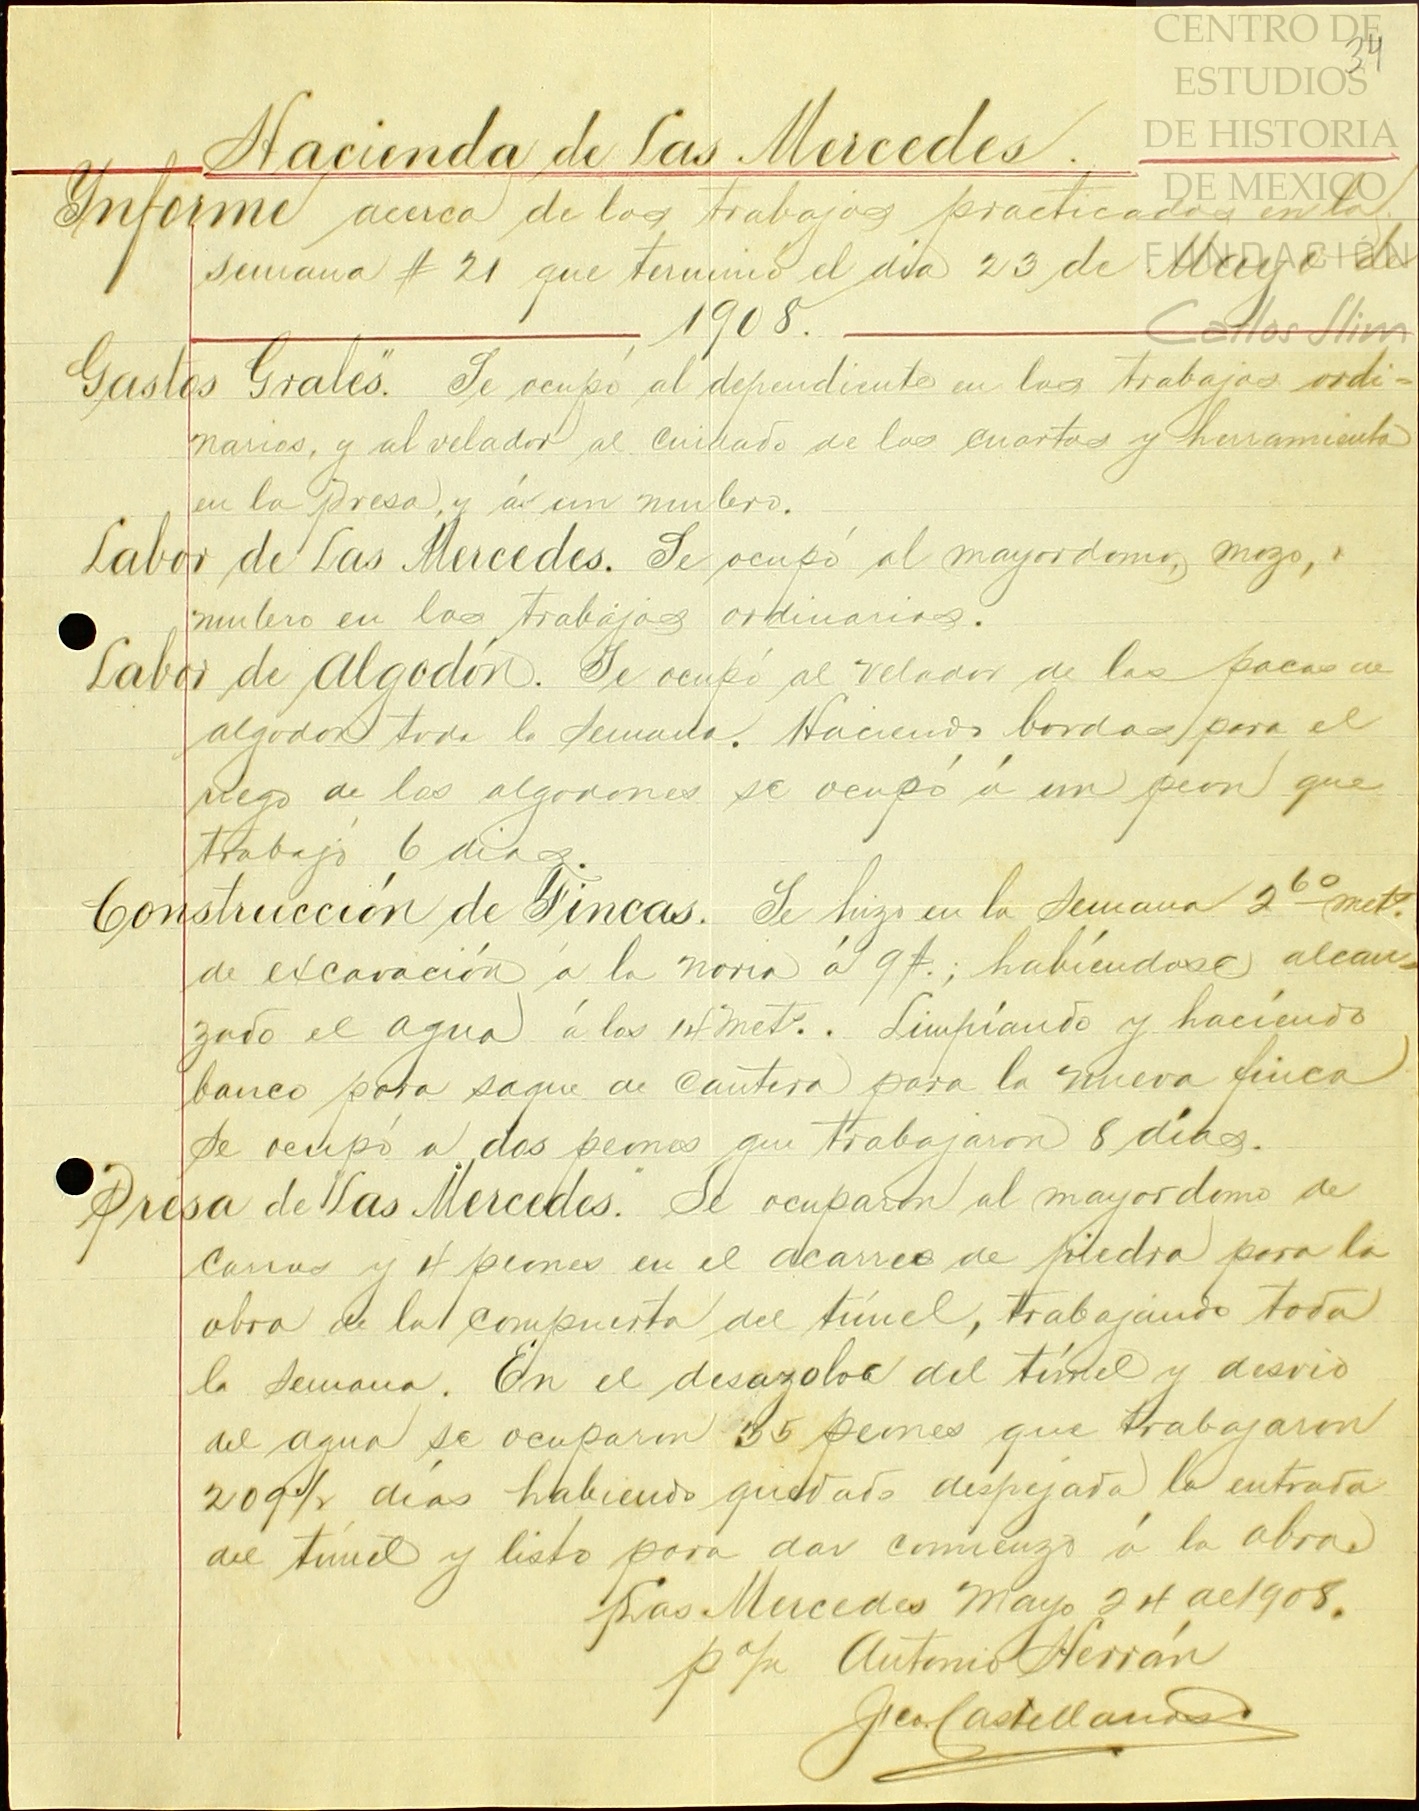 CENTRO DE
ESTUDIOS
DE HISTORIA
DE MEXICO
FUNDACIÓN
Carlos Slim
34
Hacienda de Las Mercedes.
Informe acerca de los trabajos practicados en la
semana # 21 que terminó el día 23 de Mayo de
1908.
Gastos Grales". Se ocupó al dependiente en los trabajos ordi=
narios, y al velador al cuidado de los cuartos y herramienta
en la presa, y á un mulero.
Labor de Las Mercedes. Se ocupó al mayordomo, mozo,
mulero en los trabajos ordinarios.
Labor de Algodón. Se ocupó al velador de las pacas de
algodon toda la semana. Haciendo bordos para el
riego de los algodones se ocupó á un peon que
trabajó 6 dias.
Construcción de Fincas. Se hizo en la semana 2 60 mets.
de excavación á la noria á 9 $.; habiéndose alcan=
zado el agua á los 14 mets.. Limpiando y haciendo
banco para saque de cantera para la nueva finca
se ocupó a dos peones que trabajaron 8 días.
Presa de "Las Mercedes." Se ocuparon al mayordomo de
carros y 4 peones en el acarreo de piedra para la
obra de la compuerta del túnel, trabajando toda
la semana. En el desazolve del túnel y desvio
del agua se ocuparon 35 peones que trabajaron
209 1/2 días habiendo quedado despejada la entrada
del túnel y listo para dar comienzo á la obra.
Las Mercedes Mayo 24 de 1908.
p a/n Antonio Herrán
Fco. Castellanos